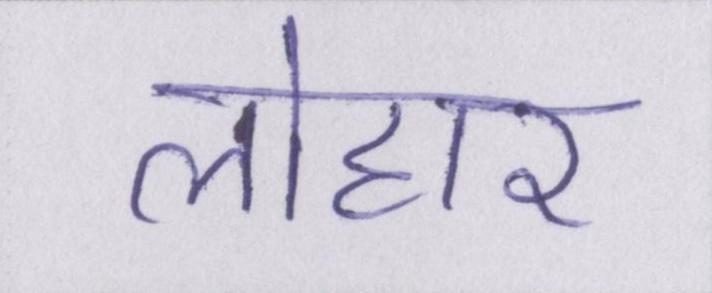 लोहार